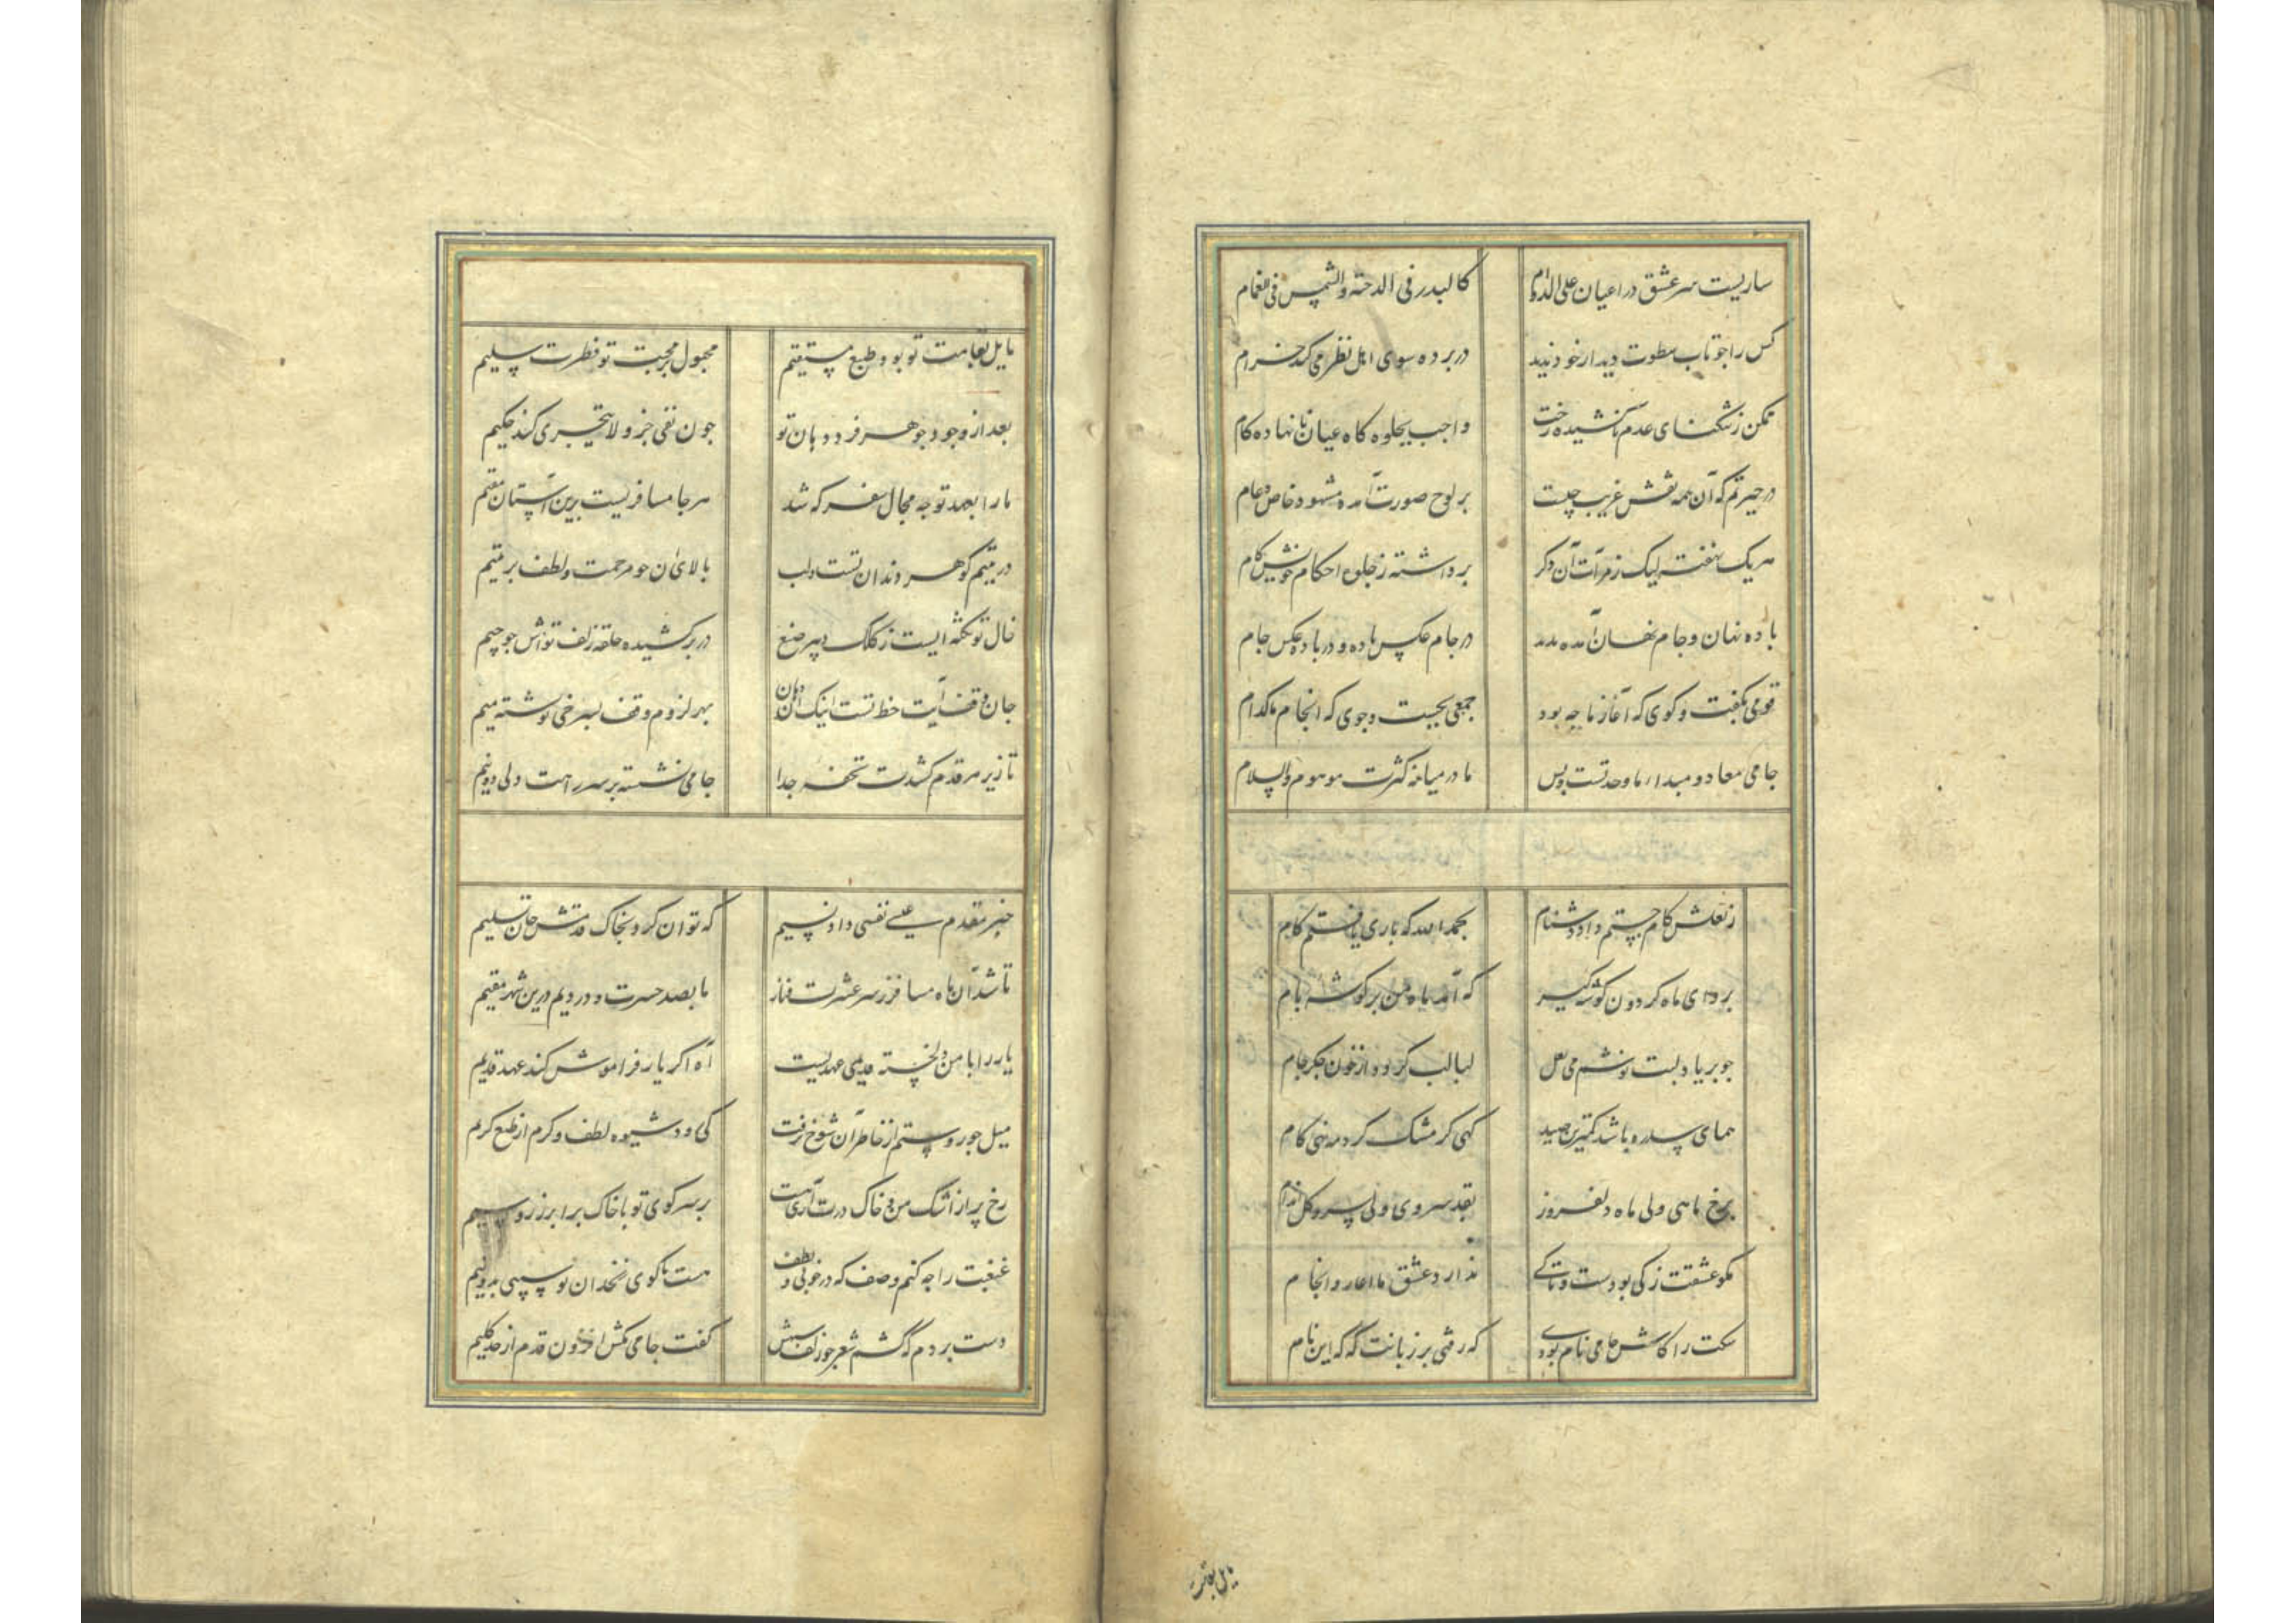 ساریست سر عشق در اعیان علی الدوام کالبدر فی الدجنة والشمس فی الغمام
کس را چو تاب سطوت دیدار خود ندید در پرده سوی اهل نظر می کند خرام
ممکن ز تنکنای عدم ناکشیده رخت واجب بجلوه کاه عیان نانهاده کام
در حیرتم که آن همه نقش غریب چیست بر لوح صورت آمده مشهود خاص و عام
هر یک نهفته لیک ز مرآت آن دکر برداشته ز جلوه احکام خویش کام
باده نهان و جام نهان آمده پدید در جام عکس باده و در باده عکس جام
قومی بکفت و کوی که آغاز ما چه بود جمعی بجست و جوی که انجام ما کدام
جامی معاد و مبداء ما وحدتست و بس ما در میانه کثرت موهوم والسلام
ز لعلش کام جستم داد دشنام بحمد الله که باری یافتم کام
برو ای ماه کردون کوشه کیر که آمد ماه من بر کوشه بام
چو بر یاد لبت نوشم می لعل لبالب کردد از خون جکر جام
همای سدره باشد کمترین صید کهی کز مشک کرد مه نهی دام
برخ ماهی ولی ماه دلفروز بقد سروی ولی سرو کل اندام
مکو عشقت ز کی بودست و تا کی ندارد عشق ما آغاز و انجام
سکت را کاش جامی نام بودی که رفتی بر زبانت که که این نام
مایل بقا
مایل بقامت تو بود طبع مستقیم مجبول بر محبت تو فطرت سلیم
بعد از وجود جوهر فرد دهان تو چون نفی جزو لا یتجزی کند حکیم
ما را بعهد تو چه مجال سفر که شد هر جا مسافریست برین آستان مقیم
در یتیم کوهر دندان تست و لب بالای آن چو مرحمت و لطف بر یتیم
خال تو نکته ایست ز کلک دبیر صنع در بر کشیده حلقه زلف تواش چو جیم
جان وقف آیت خط تست اینک آن دهان بهر لزوم وقف بسرخی نوشته میم
تا زیر هر قدم کشدت تحفه جدا جامی نشسته بر سر راهت دلی دو نیم
خبر مقدم عیسی نفسی داد نسیم که توان کرد بخاک قدمش جان تسلیم
تا شد آن ماه مسافر ز سر عشرت و ناز ما بصد حسرت و دردیم درین شهر مقیم
یار را با من دلخسته قدیمی عهدیست آه اکر یار فراموش کند عهد قدیم
میل جور و ستم از خاطر آن شوخ نرفت کی رود شیوه لطف و کرم از طبع کریم
رخ پر از اشک من و خاک درت آری هست بر سر کوی تو با خاک برابر زر و سیم
غبغبت را چه کنم وصف که در خوبی و لطف هست با کوی زنخدان تو سیبی بدو نیم
دست بردم که کشم شعر چو زلفش کفت جامی مکش افزون قدم از حد کلیم